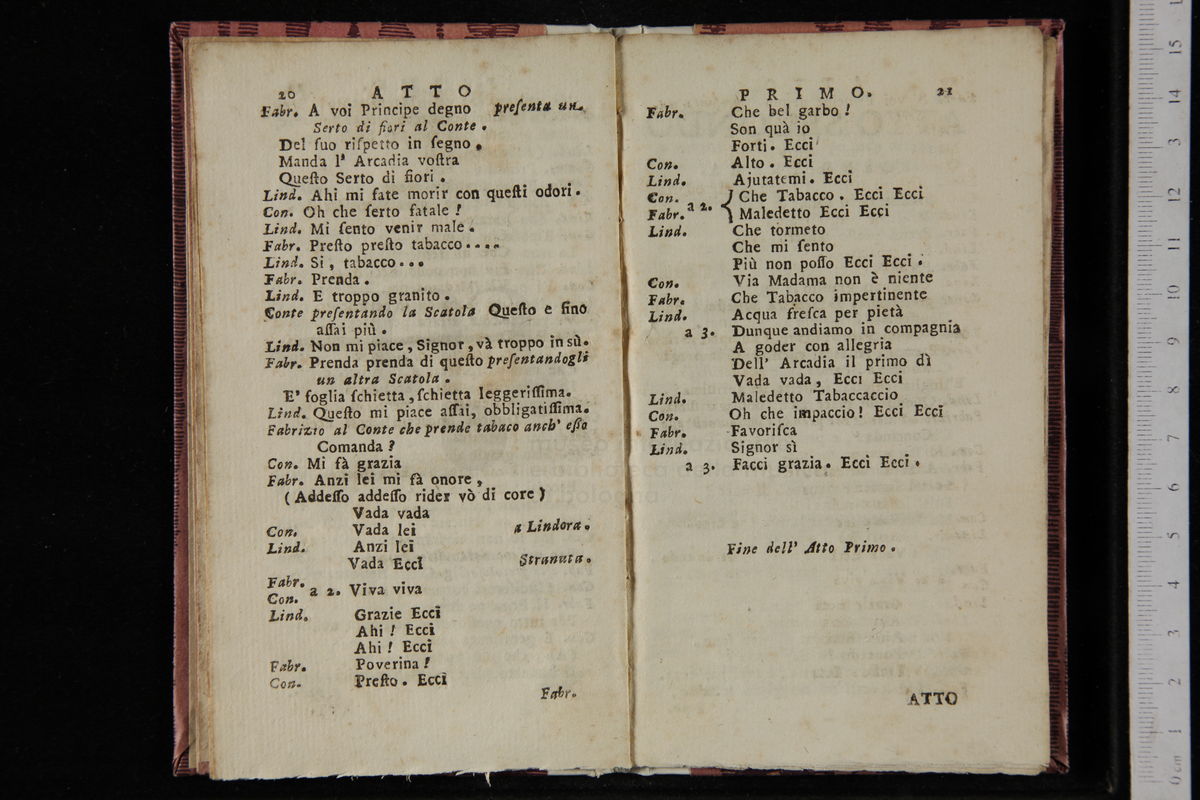 20 ATTO
Fabr. A voi Principe degno presenta un
Serto di fiori al Conte.
Del ſuo riſpetto in ſegno.
Manda l' Arcadia voſtra
Queſto Serto di fiori.
Lind. Ahi mi fate morir con queſti odori.
Con. Oh che ſerto fatale!
Lind. Mi ſento venir male.
Fabr. Preſto preſto tabacco....
Lind. Si, tabacco...
Fabr. Prenda.
Lind. E troppo granito.
Conte preſentando la Scatola Queſto e fino
aſſai più.
Lind. Non mi piace, Signor, và troppo in sù.
Fabr. Prenda prenda di queſto preſentandogli
un altra Scatola.
E' foglia ſchietta, ſchietta leggeriſſima.
Lind. Queſto mi piace aſſai, obbligatiſſima.
Fabrizio al Conte che prende tabaco anch' eſſo
Comanda?
Con. Mi fà grazia
Fabr. Anzi lei mi fà onore,
(Addeſſo addeſſo rider vò di core)
Vada vada
Con. Vada lei a Lindora.
Lind. Anzi lei
Vada Eccì Stranuta.
Fabr.
Con. a 2. Viva viva
Lind. Grazie Eccì
Ahi! Eccì
Ahi! Eccì
Fabr. Poverina!
Con. Preſto. Eccì
Fabr.
PRIMO. 21
Fabr. Che bel garbo!
Son quà io
Forti. Eccì
Con. Alto. Eccì
Lind. Ajutatemi. Eccì
Con. a 2. { Che Tabacco. Eccì Eccì
Fabr. Maledetto Eccì Eccì
Lind. Che tormeto
Che mi ſento
Più non poſſo Eccì Eccì.
Con. Via Madama non è niente
Fabr. Che Tabacco impertinente
Lind. Acqua freſca per pietà
a 3. Dunque andiamo in compagnia
A goder con allegria
Dell' Arcadia il primo dì
Vada vada, Eccì Eccì
Lind. Maledetto Tabaccaccio
Con. Oh che impaccio! Eccì Eccì
Fabr. Favoriſca
Lind. Signor sì
a 3. Facci grazia. Eccì Eccì.
Fine dell' Atto Primo.
ATTO